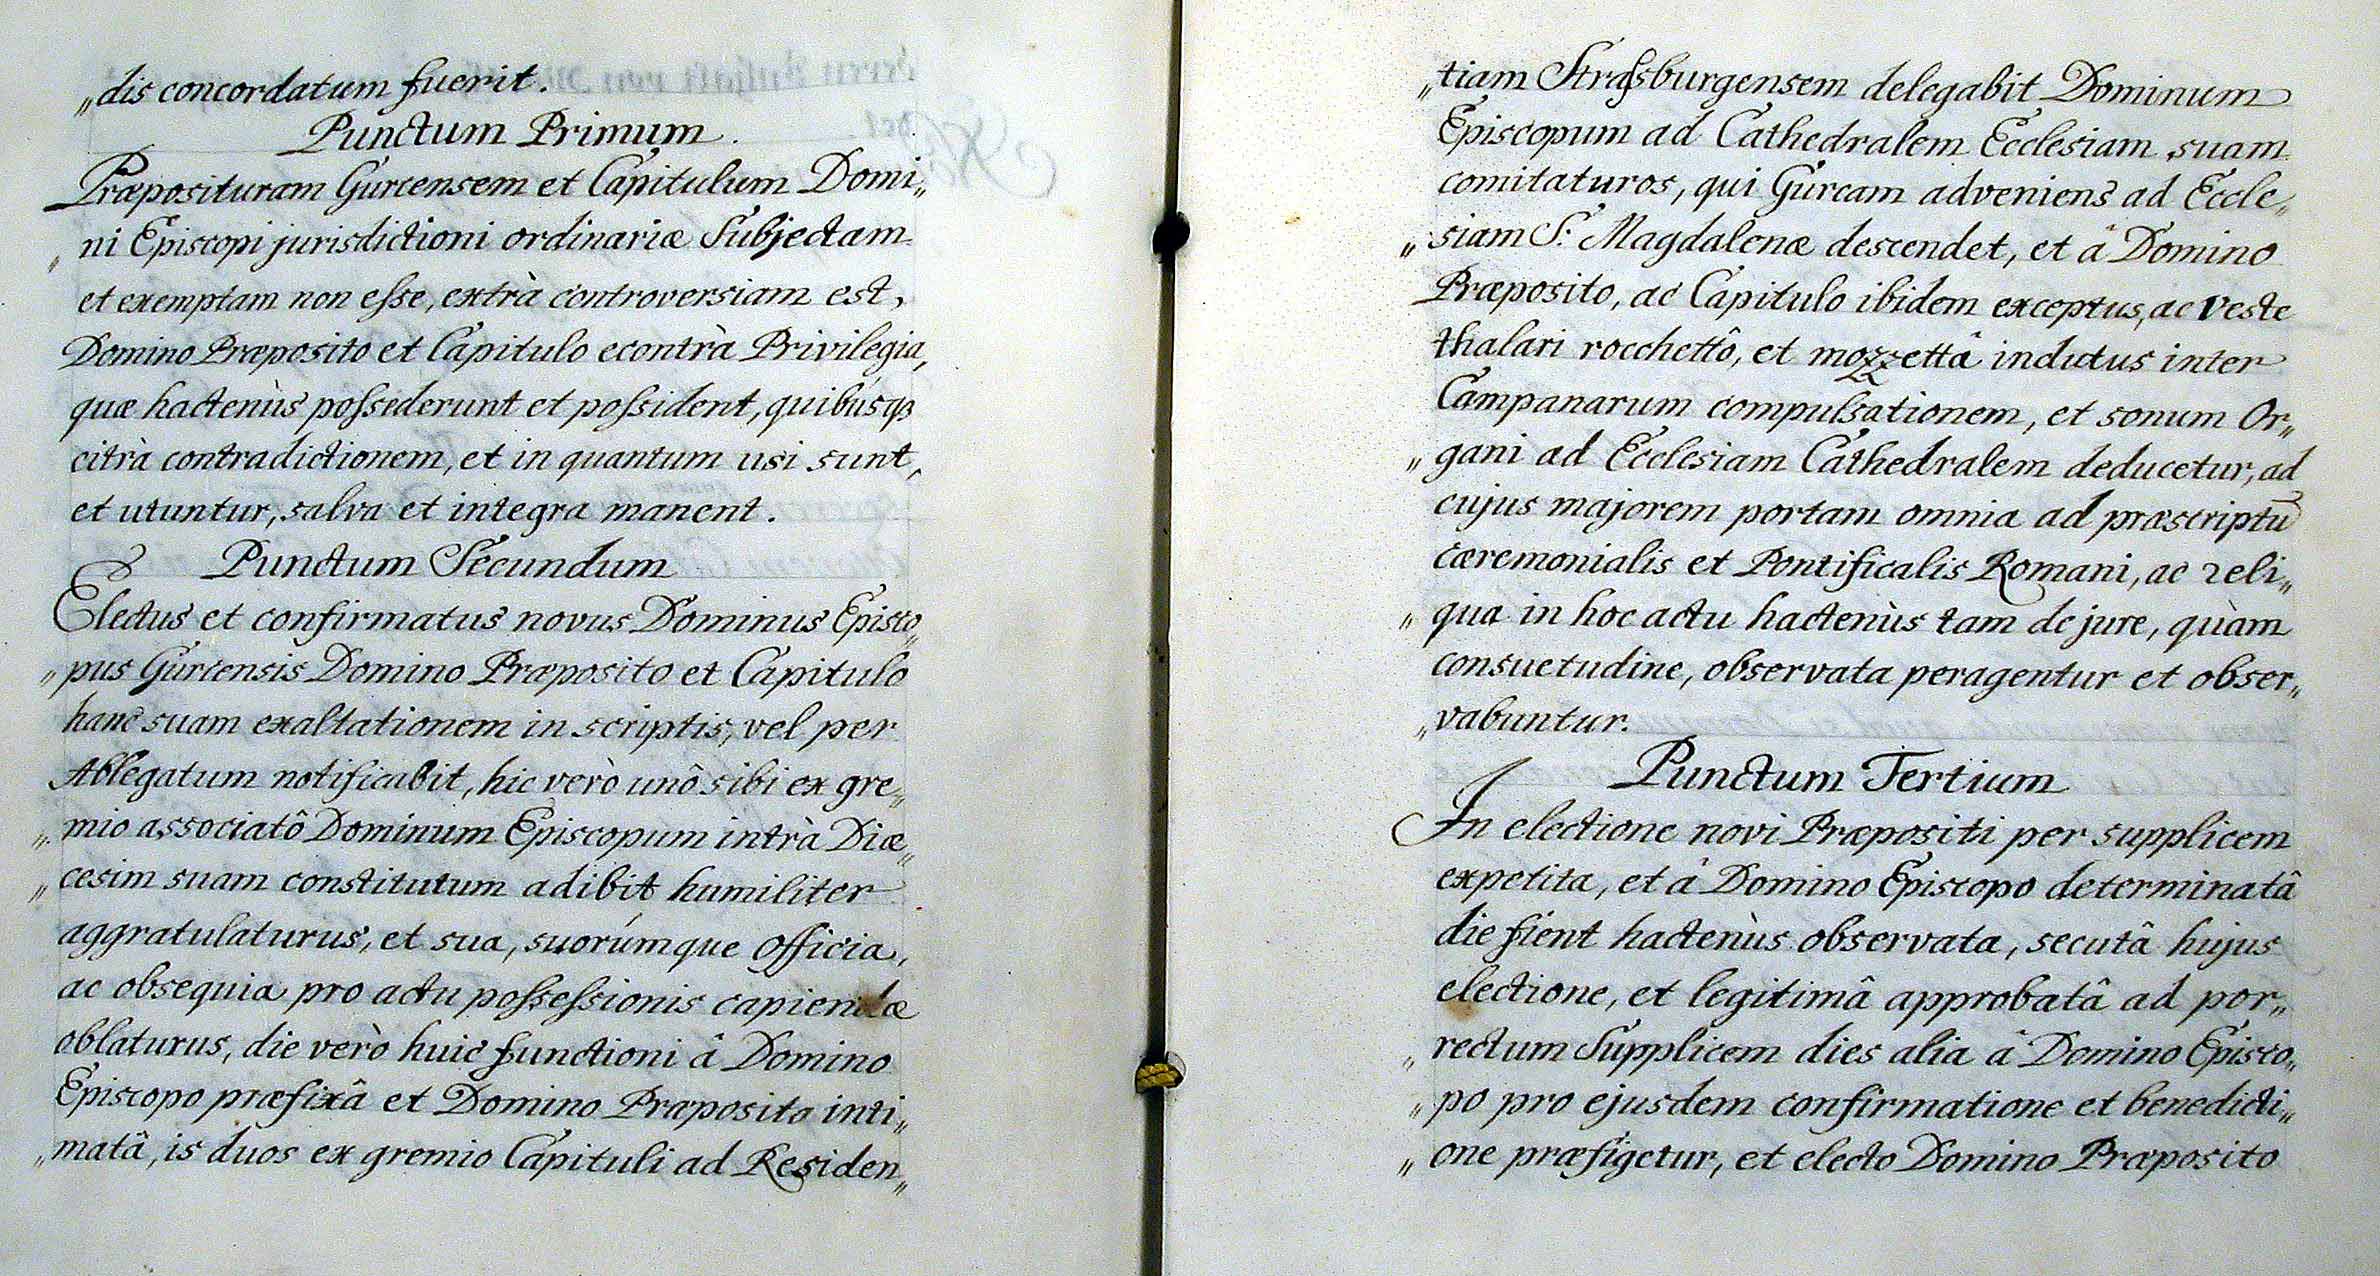 „dis concordatum fuerit.
Punctum Primum.
Præposituram Gurcensem et Capitulum Domi„
„ni Episcopi jurisdictioni ordinariæ Subjectam
et exemptam non eſse, extrà controversiam est,
Domino Præposito et Capitulo econtrà Privilegia,
quæ hactenùs poſsederunt et poſsident, quibúsqꝫ
citrà contradictionem, et in quantum usi sunt,
et utuntur, salva et integra manent.
Punctum Secundum
Electus et confirmatus novus Dominus Episco„
„pus Gurcensis Domino Præposito et Capitulo
hanc suam exaltationem in scriptis, vel per
Ablegatum notificabit, hic verò unô sibi ex gre„
„mio associatô Dominum Episcopum intrà Diæ„
„cesim suam constitutum adibit humiliter
aggratulaturus, et sua, suorúmque officia,
ac obsequia pro actu poſseſsionis capiendæ
oblaturus, die verò huic functioni â Domino
Episcopo præfixâ et Domino Præposito inti„
„matâ, is duos ex gremio Capituli ad Residen„
„tiam Straſsburgensem delegabit Dominum
Episcopum ad Cathedralem Ecclesiam suam
comitaturos, qui Gurcam adveniens ad Eccle„
„siam S. Magdalenæ descendet, et â Domino
Præposito, ac Capitulo ibidem exceptus, ac veste
thalari rocchettô, et mozzettâ indutus inter
Campanarum compulsationem, et sonum Or„
„gani ad Ecclesiam Cathedralem deducetur, ad
cujus majorem portam omnia ad præscriptū
cæremonialis et Pontificalis Romani, ac reli„
„qua in hoc actu hactenùs tam de jure, quàm
consuetudine, observata peragentur et obser„
„vabuntur.
Punctum Tertium
In electione novi Præpositi per supplicem
expetita, et â Domino Episcopo determinatâ
die fient hactenùs observata, secutâ hujus
electione, et legitimâ approbatâ ad por„
„rectum Supplicem dies alia â Domino Episco„
„po pro ejusdem confirmatione et benedicti„
„one præfigetur, et electo Domino Præposito